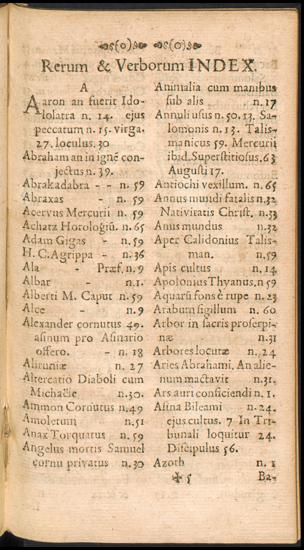 Rerum & Verborum INDEX.
A
Aaron an fuerit Ido-
lolatra n. 14. ejus
peccatum n. 15. virga.
27. loculus. 30
Abraham an in ignē con-
jectus n. 39.
Abrakadabra - - n. 59
Abraxas - n. 59
Acervus Mercurii n. 59
Achatz Horologiū. n. 65
Adam Gigas - n. 59
H. C. Agrippa - n. 36
Ala - Præf. n. 9
Albar - n. 1.
Alberti M. Caput n. 59
Alce - n. 9
Alexander cornutus 49.
asinum pro Asinario
offero. - n. 18
Aliruniæ n. 27
Altercatio Diaboli cum
Michaële n. 30.
Ammon Cornutus n. 49
Amoletum n. 51
Anax Torquatus n. 59
Angelus mortis Samuel
cornu privatus n. 30
Animalia cum manibus
sub alis n. 17
Annuli usus n. 50. 13. Sa-
lomonis n. 13. Talis-
manicus 59. Mercurii
ibid. Superstitiosus, 63
Augusti 17.
Antiochi vexillum. n. 65
Annus mundi fatalis n. 32
Nativitatis Christ. n. 33
Anus mundus n. 32
Aper Calidonius Talis-
man. n. 59
Apis cultus n. 14
Apolonius Thyanus, n 59
Aquarū fons è rupe n. 23
Arabum sigillum n. 60
Arbor in sacris proserpi-
næ n. 31
Arbores locutæ n. 24
Aries Abrahami. An alie-
num mactavit n. 31.
Ars auri conficiendi n. 1.
Asina Bileami n. 24.
ejus cultus. 7 In Tri-
bunali loquitur 24.
Discipulus 56.
Azoth n. 1
✠ 5 Ba-